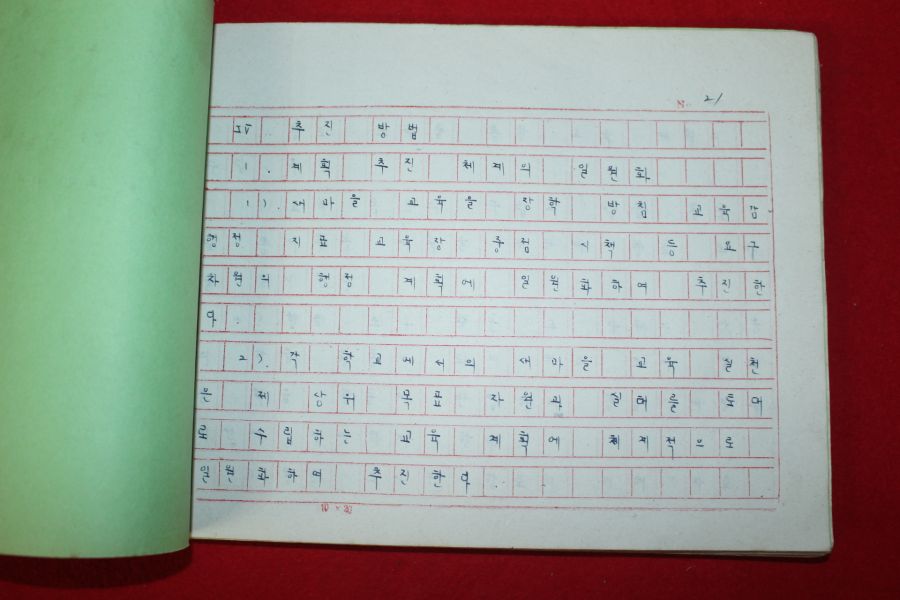 № 21
추진 방법
1. 계획 추진 체계의 일원화
1). 새마을 교육을 장학 방침 교육감
행정 지표 교육장 중점 시책 등
차원의 행정 계획에 일원화하여 추진한
다.
2). 각 학교에서의 새마을 교육 실천
은 제 상위 목표 차원과 실태를 토대
로 수립하는 교육 계획에 체계적으로
일원화하여 추진한다.
10 × 20